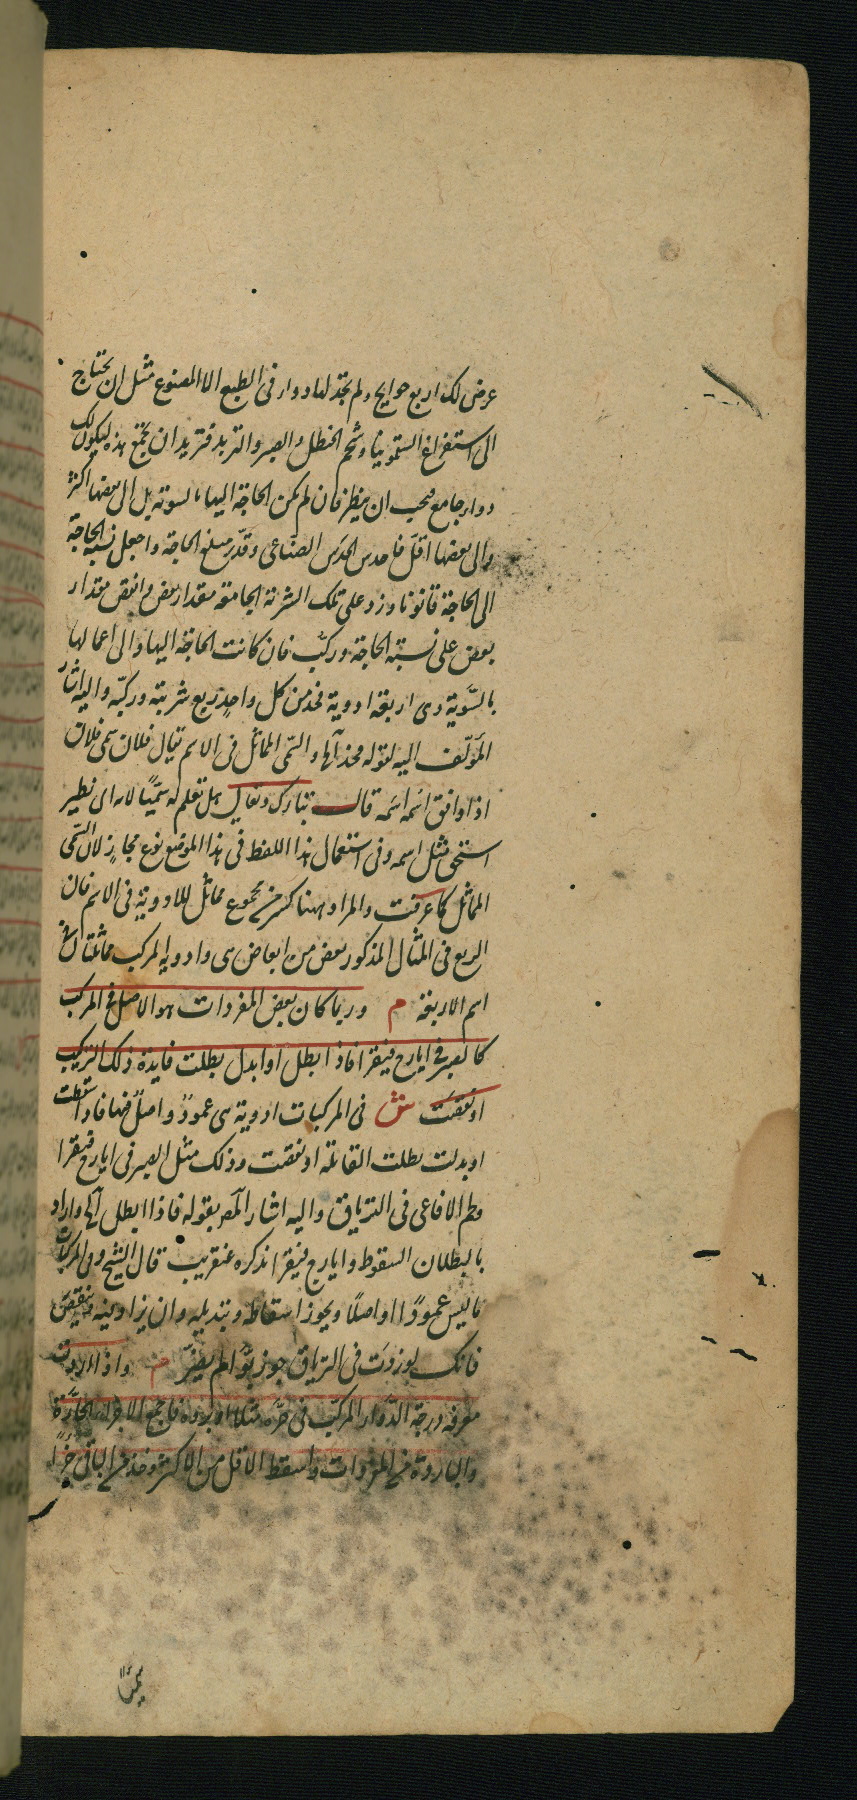 عرض لك اربع حوايج ولم تجد لها دواء في الطبع الا المصنوع مثل ان يحتاج
الى استفراغ السقمونيا وشحم الحنظل والصبر والتربد فتريد ان يجمع هذه ليكون لك
دواء جامع فيجب ان ينظر فان لم يكن الحاجة اليها بالسوية بل الى بعضها اكثر
والى بعضها اقل فاحدس الحدس الصناعى وقدّر مبلغ الحاجة واجعل نسبة الحاجة
الى الحاجة قانونا وزد على تلك الشربة الجامعة مقدار بعض وانقص مقدار
بعض على نسبة الحاجة وركب فان كانت الحاجة اليها والى اعمالها
بالسّوية وهى اربعة ادوية فخذ من كل واحد ربع شربته وركّبه واليه اشار
المؤلّف اليه بقوله فخذ آه والسّمى المماثل فى الاسم يقال فلان سمى فلان
اذا وافق اسمه اسمه قال تبارك وتعالى هل تعلم له سميًا لانه اى نظير
استحق مثل اسمه وفى استعمال هذا اللفظ فى هذا الموضع نوع مجاز لان السّمى
المماثل كما عرفت والمراد ههنا كسر مجموع مماثل للادوية فى الاسم فان
الربع فى المثال المذكور بعض من ابعاض هى وادوية المركب مماثلتان فى
اسم الاربعة م وربما كان بعض المفردات هو الاصل فى المركب
كالصبر فى ايارج فيقرا فاذا بطل او ابدل بطلت فايدة ذلك التركيب
او نقصت ش فى المركبات ادوية هى عمود واصل فيها فاذا اسقطت
او بدلت بطلت الفائدة او نقصت وذلك مثل الصبر فى ايارج فيقرا
ولحم الافاعى فى الترياق واليه اشار المص بقوله فاذا ابطل آه واراد
بالبطلان السقوط وايارج فيقرا نذكره عنقريب قال الشيخ وفى المركبات
ما ليس عمودًا او اصلًا ويجوز اسقاطه وتبديله وان يزاد فيه وينقص
فانك لو زدت فى الترياق جوز بوّا لم يضر م واذا اردت
معرفة درجة الدّواء المركّب فى حرّه مثلا او برده فاجمع الاجزاء الحارّة
والباردة من المفردات واسقط الاقل من الاكثر وخذ من الباقى جزًا
سميّا